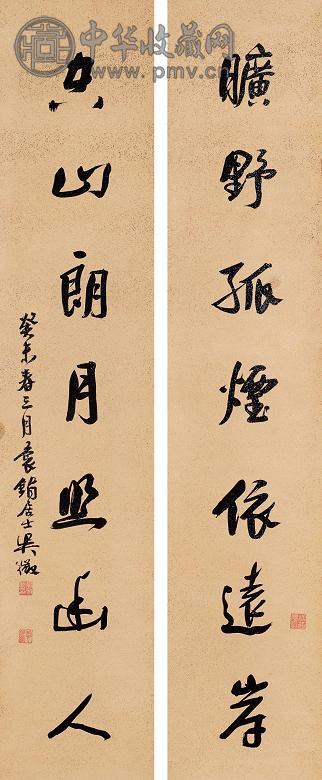 中华收藏网
www.pmv.cn
曠野孤煙依遠岸
空山朗月照幽人
癸未春三月袁鋗居士吳徵